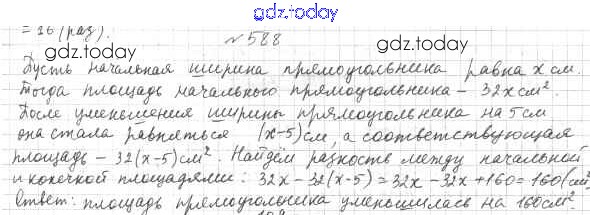 gdz.today
= 16 (раз).
gdz.today
№ 588
gdz.today
Пусть начальная ширина прямоугольника равна x см.
Тогда площадь начального прямоугольника – 32x см².
После уменьшения ширины прямоугольника на 5 см
она стала равняться (x-5) см, а соответствующая
площадь – 32(x-5) см². Найдём разность между начальной
и конечной площадями: 32x - 32(x-5) = 32x - 32x + 160 = 160 (см²
Ответ: площадь прямоугольника уменьшилась на 160 см²
gdz.today
gdz.today